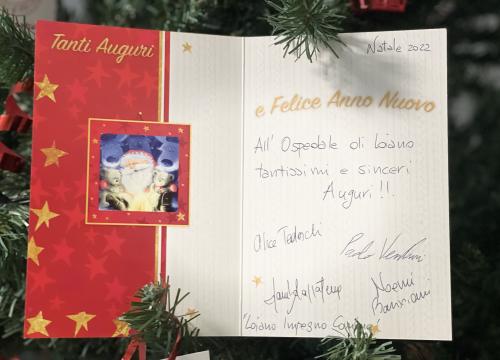 Tanti Auguri
Natale 2022
e Felice Anno Nuovo
All' Ospedale di Loiano
tantissimi e sinceri
Auguri!!
Alice Tedeschi
Paolo Venturi
Noemi
'Loiano Impegno Comune'